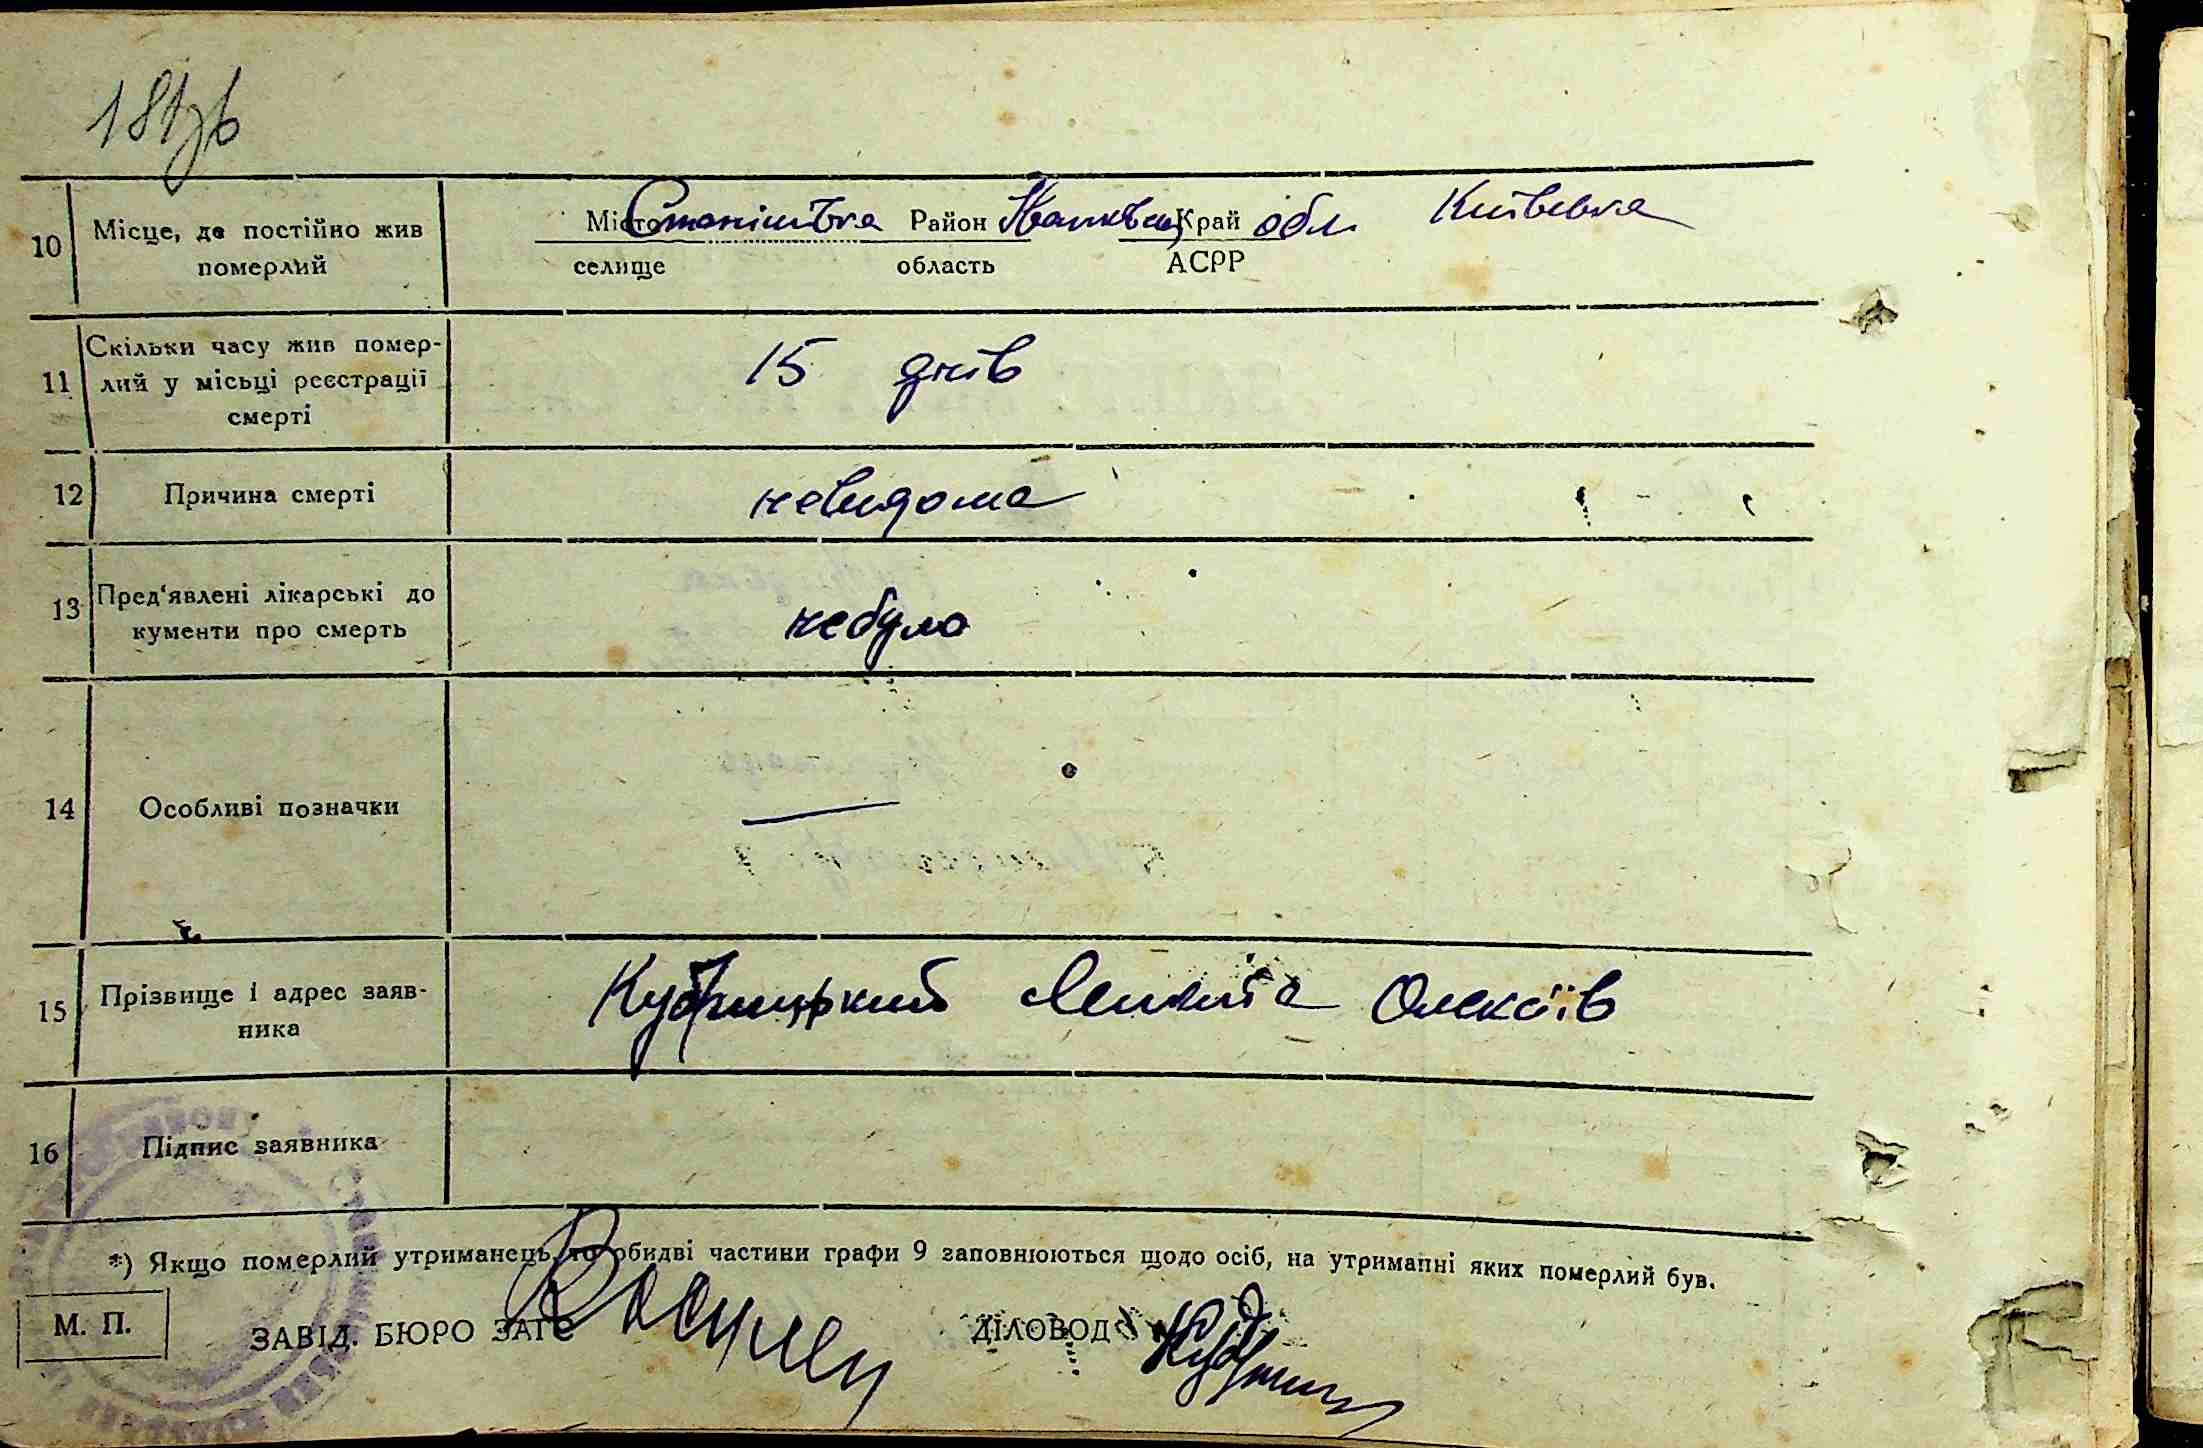 181зв
10 Місце, де постійно жив Місто Станішівка Район Іванківськ Край обл. Київська
померлий селище область АСРР
11 Скільки часу жив помер-
лий у місьці реєстрації 15 днів
смерті
12 Причина смерті невидома
13 Пред'явлені лікарські до
кументи про смерть небуло
14 Особливі позначки —
15 Прізвище і адрес заяв- Кубрицький Микита Олексіїв
ника
16 Підпис заявника
*) Якщо померлий утриманець, то обидві частини графи 9 заповнюються щодо осіб, на утриманні яких померлий був.
М. П. ЗАВІД. БЮРО ЗАГС ДІЛОВОД